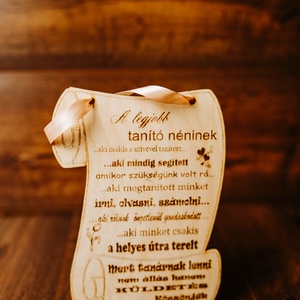 A legjobb
tanító néninek
...aki mindig segített
amikor szükségünk volt rá...
...aki megtanított minket
írni, olvasni, számolni...
...aki minket csakis
a helyes útra terelt
Mert tanárnak lenni
nem állás hanem
KÜLDETÉS
Köszönjük